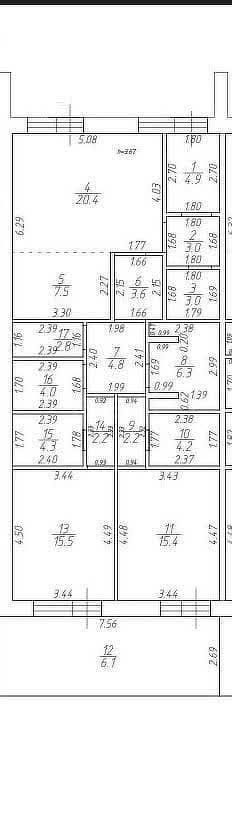 5.08
1.80
h=3.67
1
4.9
2.70
2.70
4
20.4
4.03
1.80
1.80
6.29
1.68
2
3.0
1.68
1.77
1.80
1.80
1.66
5
7.5
2.27
2.15
6
3.6
2.15
1.68
3
3.0
1.69
3.30
1.66
1.79
2.39
1.98
2.38
1.16
17
2.8
1.16
2.39
2.40
7
4.8
2.41
0.99
0.20
0.99
8
6.3
2.99
2.39
1.69
1.70
16
4.0
1.68
1.99
0.99
1.39
2.39
0.92
0.94
0.62
2.39
2.38
1.77
15
4.3
1.78
14
2.2
9
2.2
1.77
10
4.2
1.77
2.40
0.93
0.94
2.37
3.44
3.43
4.50
13
15.5
4.49
4.48
11
15.4
4.47
3.44
3.44
7.56
12
6.1
2.69